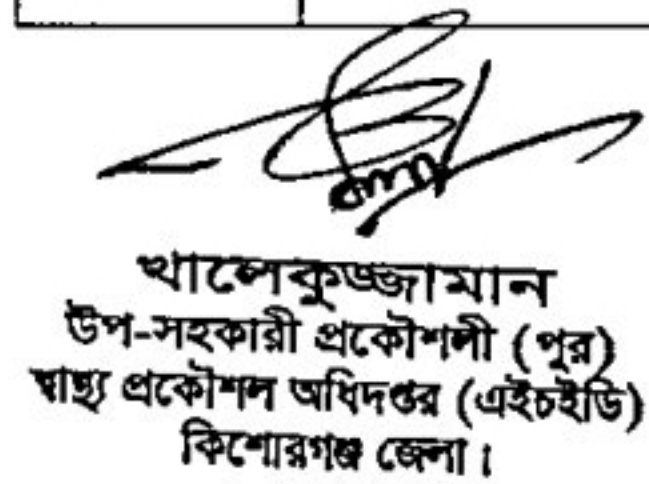 খালেকুজ্জামান
উপ-সহকারী প্রকৌশলী (পুর)
স্বাস্থ্য প্রকৌশল অধিদপ্তর (এইচইডি)
কিশোরগঞ্জ জেলা।